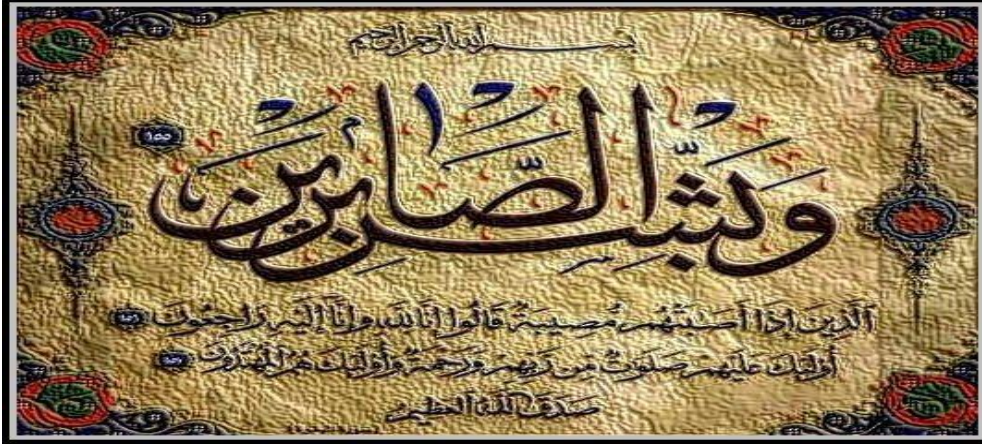 بسم الله الرحمن الرحيم
وَبَشِّرِ الصَّابِرِينَ ١٥٥
ٱلَّذِينَ إِذَا أَصَٰبَتْهُم مُّصِيبَةٌ قَالُوا إِنَّا لِلَّهِ وَإِنَّا إِلَيْهِ رَٰجِعُونَ ١٥٦
أُو۟لَٰٓئِكَ عَلَيْهِمْ صَلَوَٰتٌ مِّن رَّبِّهِمْ وَرَحْمَةٌ وَأُو۟لَٰٓئِكَ هُمُ ٱلْمُهْتَدُونَ ١٥٧
صدق الله العظيم